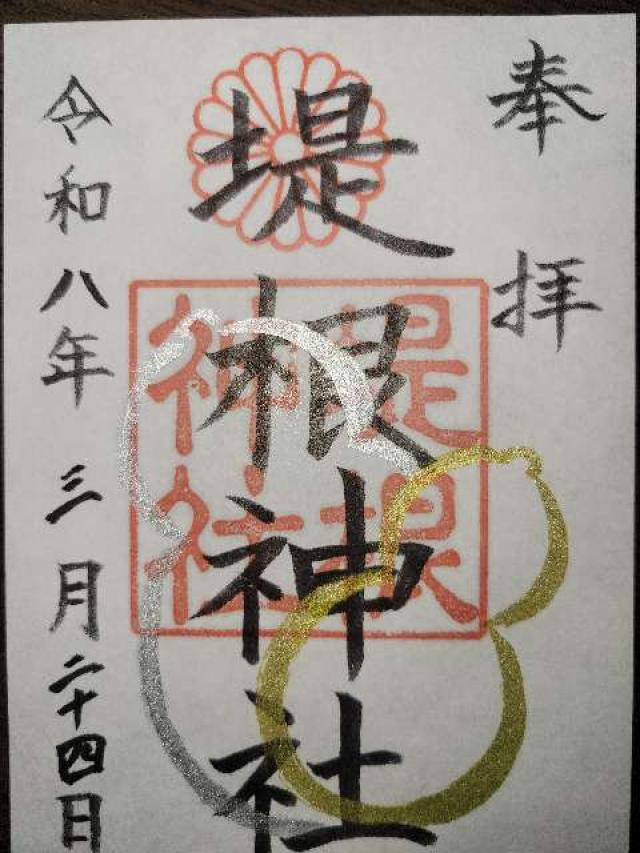 奉拝
堤根神社
堤根
神社
令和八年三月二十四日